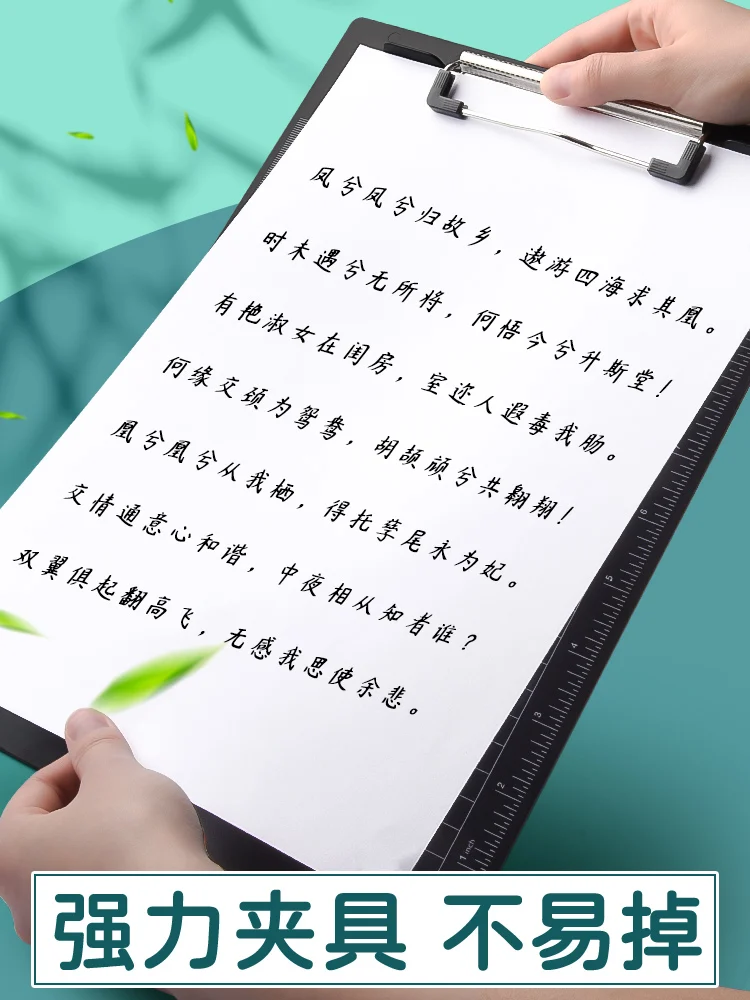 凤兮凤兮归故乡，遨游四海求其凰。
时未遇兮无所将，何悟今兮升斯堂！
有艳淑女在闺房，室迩人遐毒我肠。
何缘交颈为鸳鸯，胡颉颃兮共翱翔！
凰兮凰兮从我栖，得托孳尾永为妃。
交情通意心和谐，中夜相从知者谁？
双翼俱起翻高飞，无感我思使余悲。
6
5
4
3
2
1 inch
强力夹具 不易掉